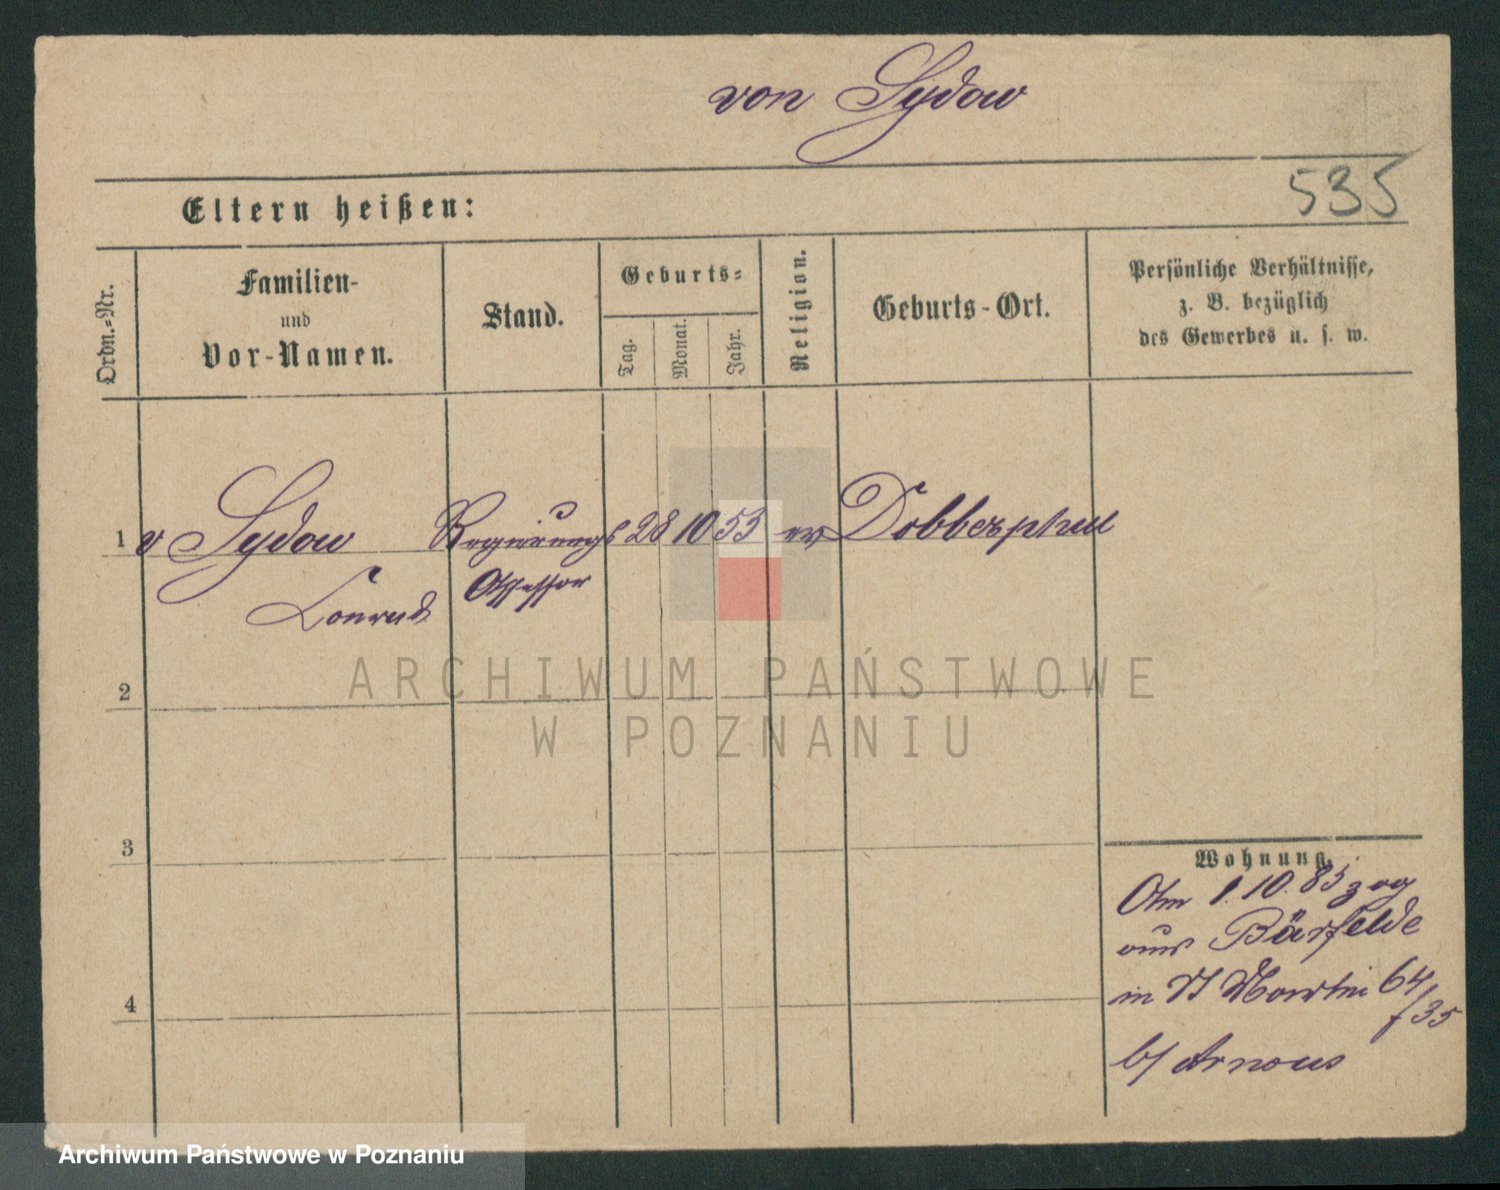 von Sydow
535
Eltern heißen:
Ordn.-Nr.
Familien-
und
Vor-Namen.
Stand.
Geburts-
Tag.
Monat.
Jahr.
Religion.
Geburts-Ort.
Persönliche Verhältnisse,
z. B. bezüglich
des Gewerbes u. s. w.
1 v Sydow Regierungs 28 10 53 ev Dobberphul
Conrad Assessor
2
3
4
Wohnung.
Am 1. 10. 85 zog
aus Bärfelde
in St Martin 64
/35
b/ Arnous
ARCHIWUM PAŃSTWOWE
W POZNANIU
Archiwum Państwowe w Poznaniu